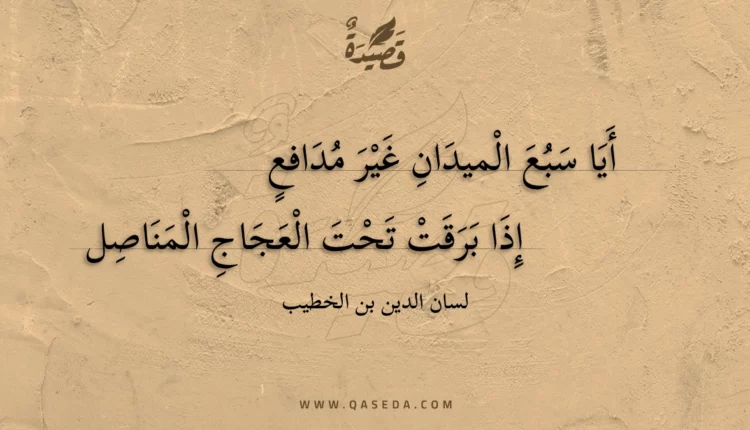 قَصِيْدَةٌ
أَيَا سَبُعَ الْميدَانِ غَيْرَ مُدَافعٍ
إِذَا بَرَقَتْ تَحْتَ الْعَجَاجِ الْمَنَاصِل
لسان الدين بن الخطيب
WWW.QASEDA.COM